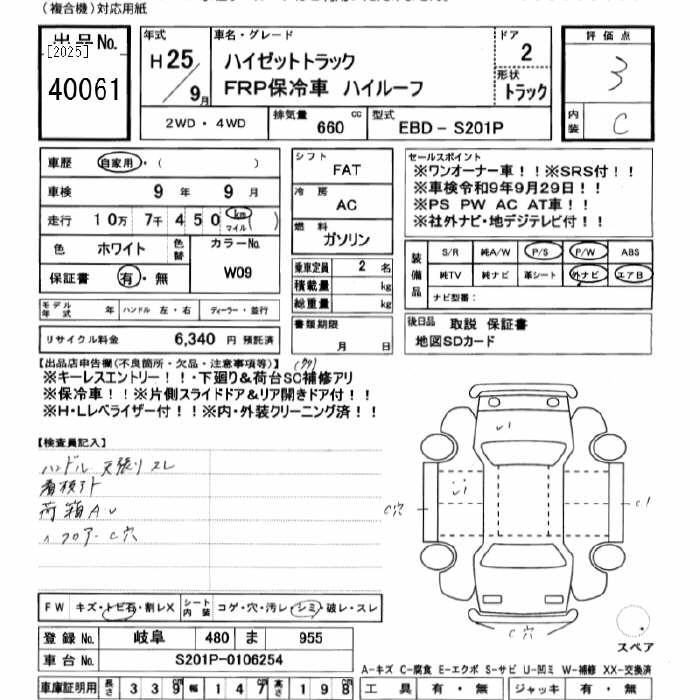 (複合機)対応用紙
出品No.
[2025]
40061
年式
H25/9月
車名・グレード
ハイゼットトラック
FRP保冷車 ハイルーフ
ドア
2
形状
トラック
評価点
3
内装
C
2WD・4WD
排気量 660 cc
型式 EBD-S201P
車歴 自家用・( )
車検 9年 9月
走行 10万 7千 450 km マイル( )
色 ホワイト 色替
カラーNo. W09
保証書 有・無
シフト FAT
冷房 AC
燃料 ガソリン
乗車定員 2名
積載量 kg
総重量 kg
書類期限
月 日
セールスポイント
※ワンオーナー車!!※SRS付!!
※車検令和9年9月29日!!
※PS PW AC AT車!!
※社外ナビ・地デジテレビ付!!
装備品
S/R 純A/W P/S P/W ABS
純TV 純ナビ 革シート 外ナビ エアB
ナビ型番:
モデル年式 年 ハンドル 左・右 ディーラー・並行
リサイクル料金 6,340円 預託済
後日品 取説 保証書
地図SDカード
【出品店申告欄(不良箇所・欠品・注意事項等)】
※キーレスエントリー!!・下廻り&荷台SC補修アリ
※保冷車!!※片側スライドドア&リア開きドア付!!
※H・Lレベライザー付!!※内・外装クリーニング済!!
【検査員記入】
ハンドル 天張り スレ
看板アト
荷箱 A U
〃 フロアー C穴
C穴
C1
C穴
FW キズ・トビ石・割レX
シート内装 コゲ・穴・汚レ・シミ・破レ・スレ
登録No. 岐阜 480 ま 955
車台No. S201P-0106254
スペア
A-キズ C-腐食 E-エクボ S-サビ U-凹ミ W-補修 XX-交換済
車庫証明用 長さ 339cm 幅 147cm 高さ 198cm
工具 有・無
ジャッキ 有・無